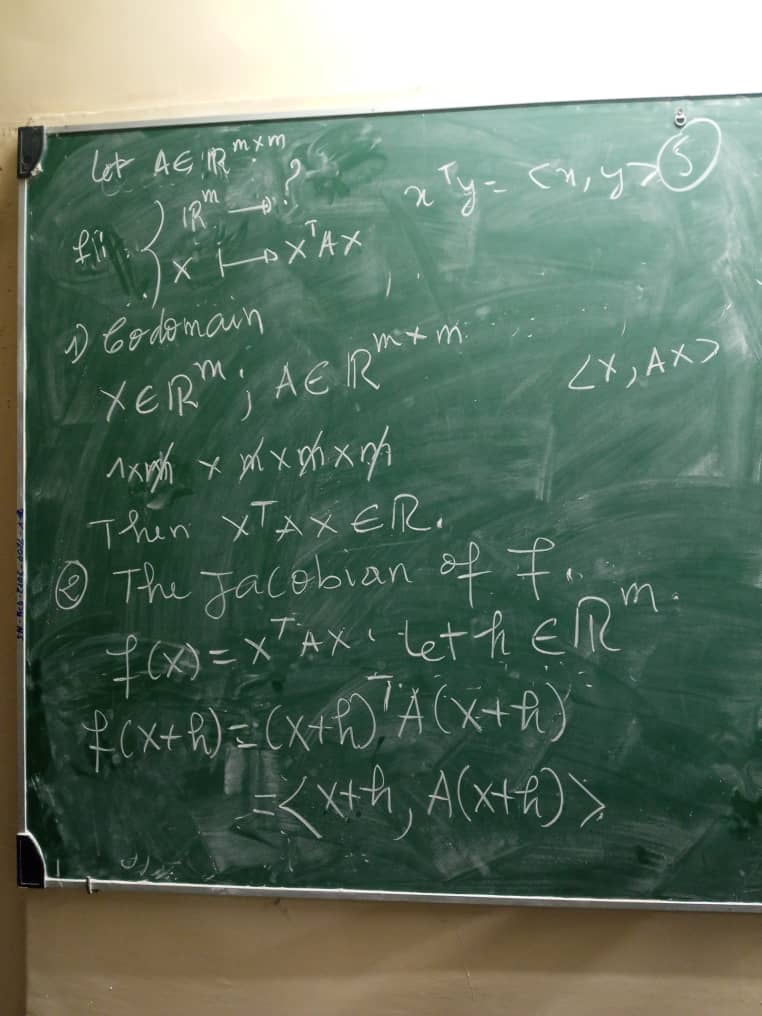 Let A ∈ ℝ^{m×m}
f: { ℝ^m → ?
x ↦ x^T A x
x^T y = <x, y> ⑤
1) Codomain
x ∈ ℝ^m ; A ∈ ℝ^{m×m}
<x, Ax>
1×m × m×m×m
Then x^T A x ∈ ℝ.
② The Jacobian of f.
f(x) = x^T A x . Let h ∈ ℝ^m.
f(x+h) = (x+h)^T A(x+h)
= <x+h, A(x+h)>